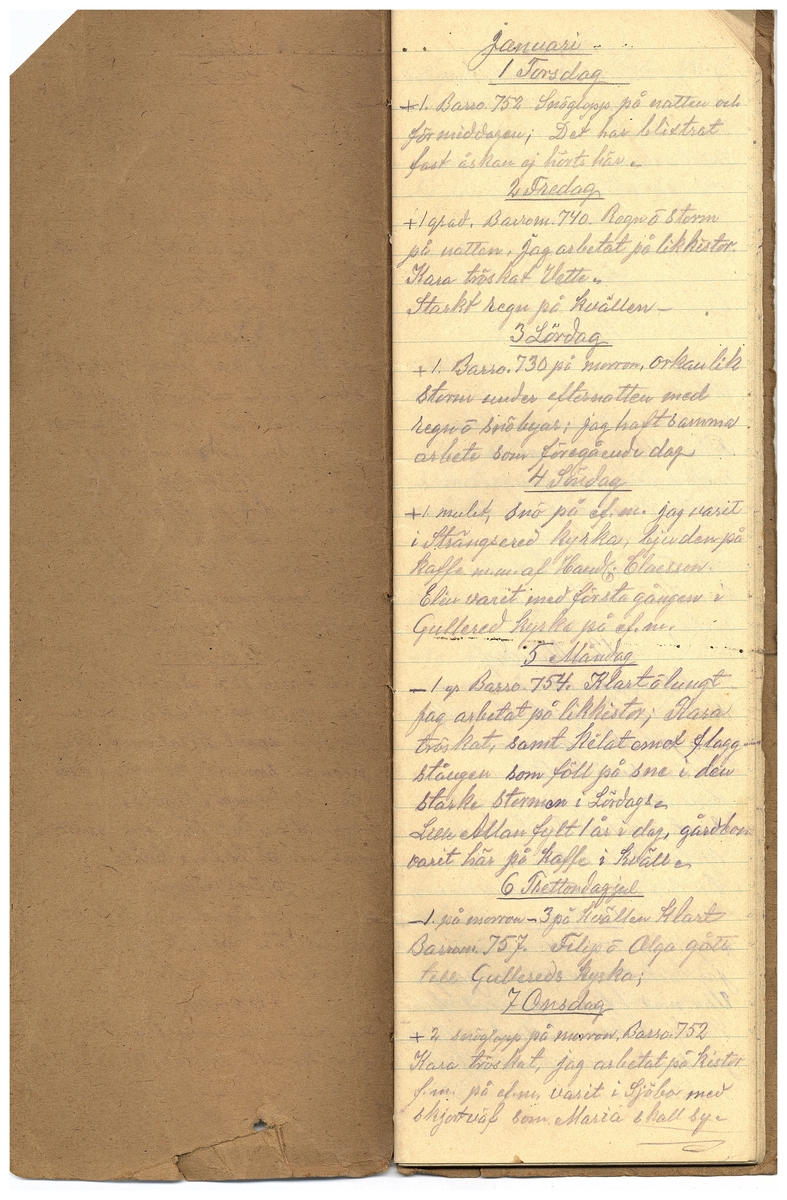 Januari
1 Torsdag
+1. Barro. 752 Snöglopp på natten och
förmiddagen; Det har blixtrat
fast åskan ej hörts här.
2 Fredag
+1 grad. Barrom. 740. Regn ö storm
på natten. Jag arbetat på likkistor.
Kara tröskat Vette.
Starkt regn på kvällen -
3 Lördag
+1. Barro. 730 på morron, orkanlik
storm under efternatten med
regn ö snöbyar; jag haft samma
arbete som föregående dag
4 Söndag
+1 mulet, snö på ef.m. jag varit
i Strängsered kyrka, bjuden på
kaffe m.m. af Handl. Claesson.
Elin varit med första gången i
Gullered kyrka på ef.m.
5 Måndag
-1 gr Barro 754. Klart ö lungt
jag arbetat på likkistor; Kara
tröskat, samt kilat omot flagg-
stången som föll på sne i den
starke stormen i Lördags.
Allan fylt 1 år i dag, gårdbon
varit här på kaffe i kväll.
6 Trettondagjul
-1. på morron -3 på kvällen Klart
Barrom. 757. Filip ö Olga gått
till Gullereds kyrka;
7 Onsdag
+2 snöglopp på morron, Barro. 752
Kara tröskat, jag arbetat på kistor
f.m. på ef.m. varit i Sjöbo med
skjortväf som Maria skall sy.